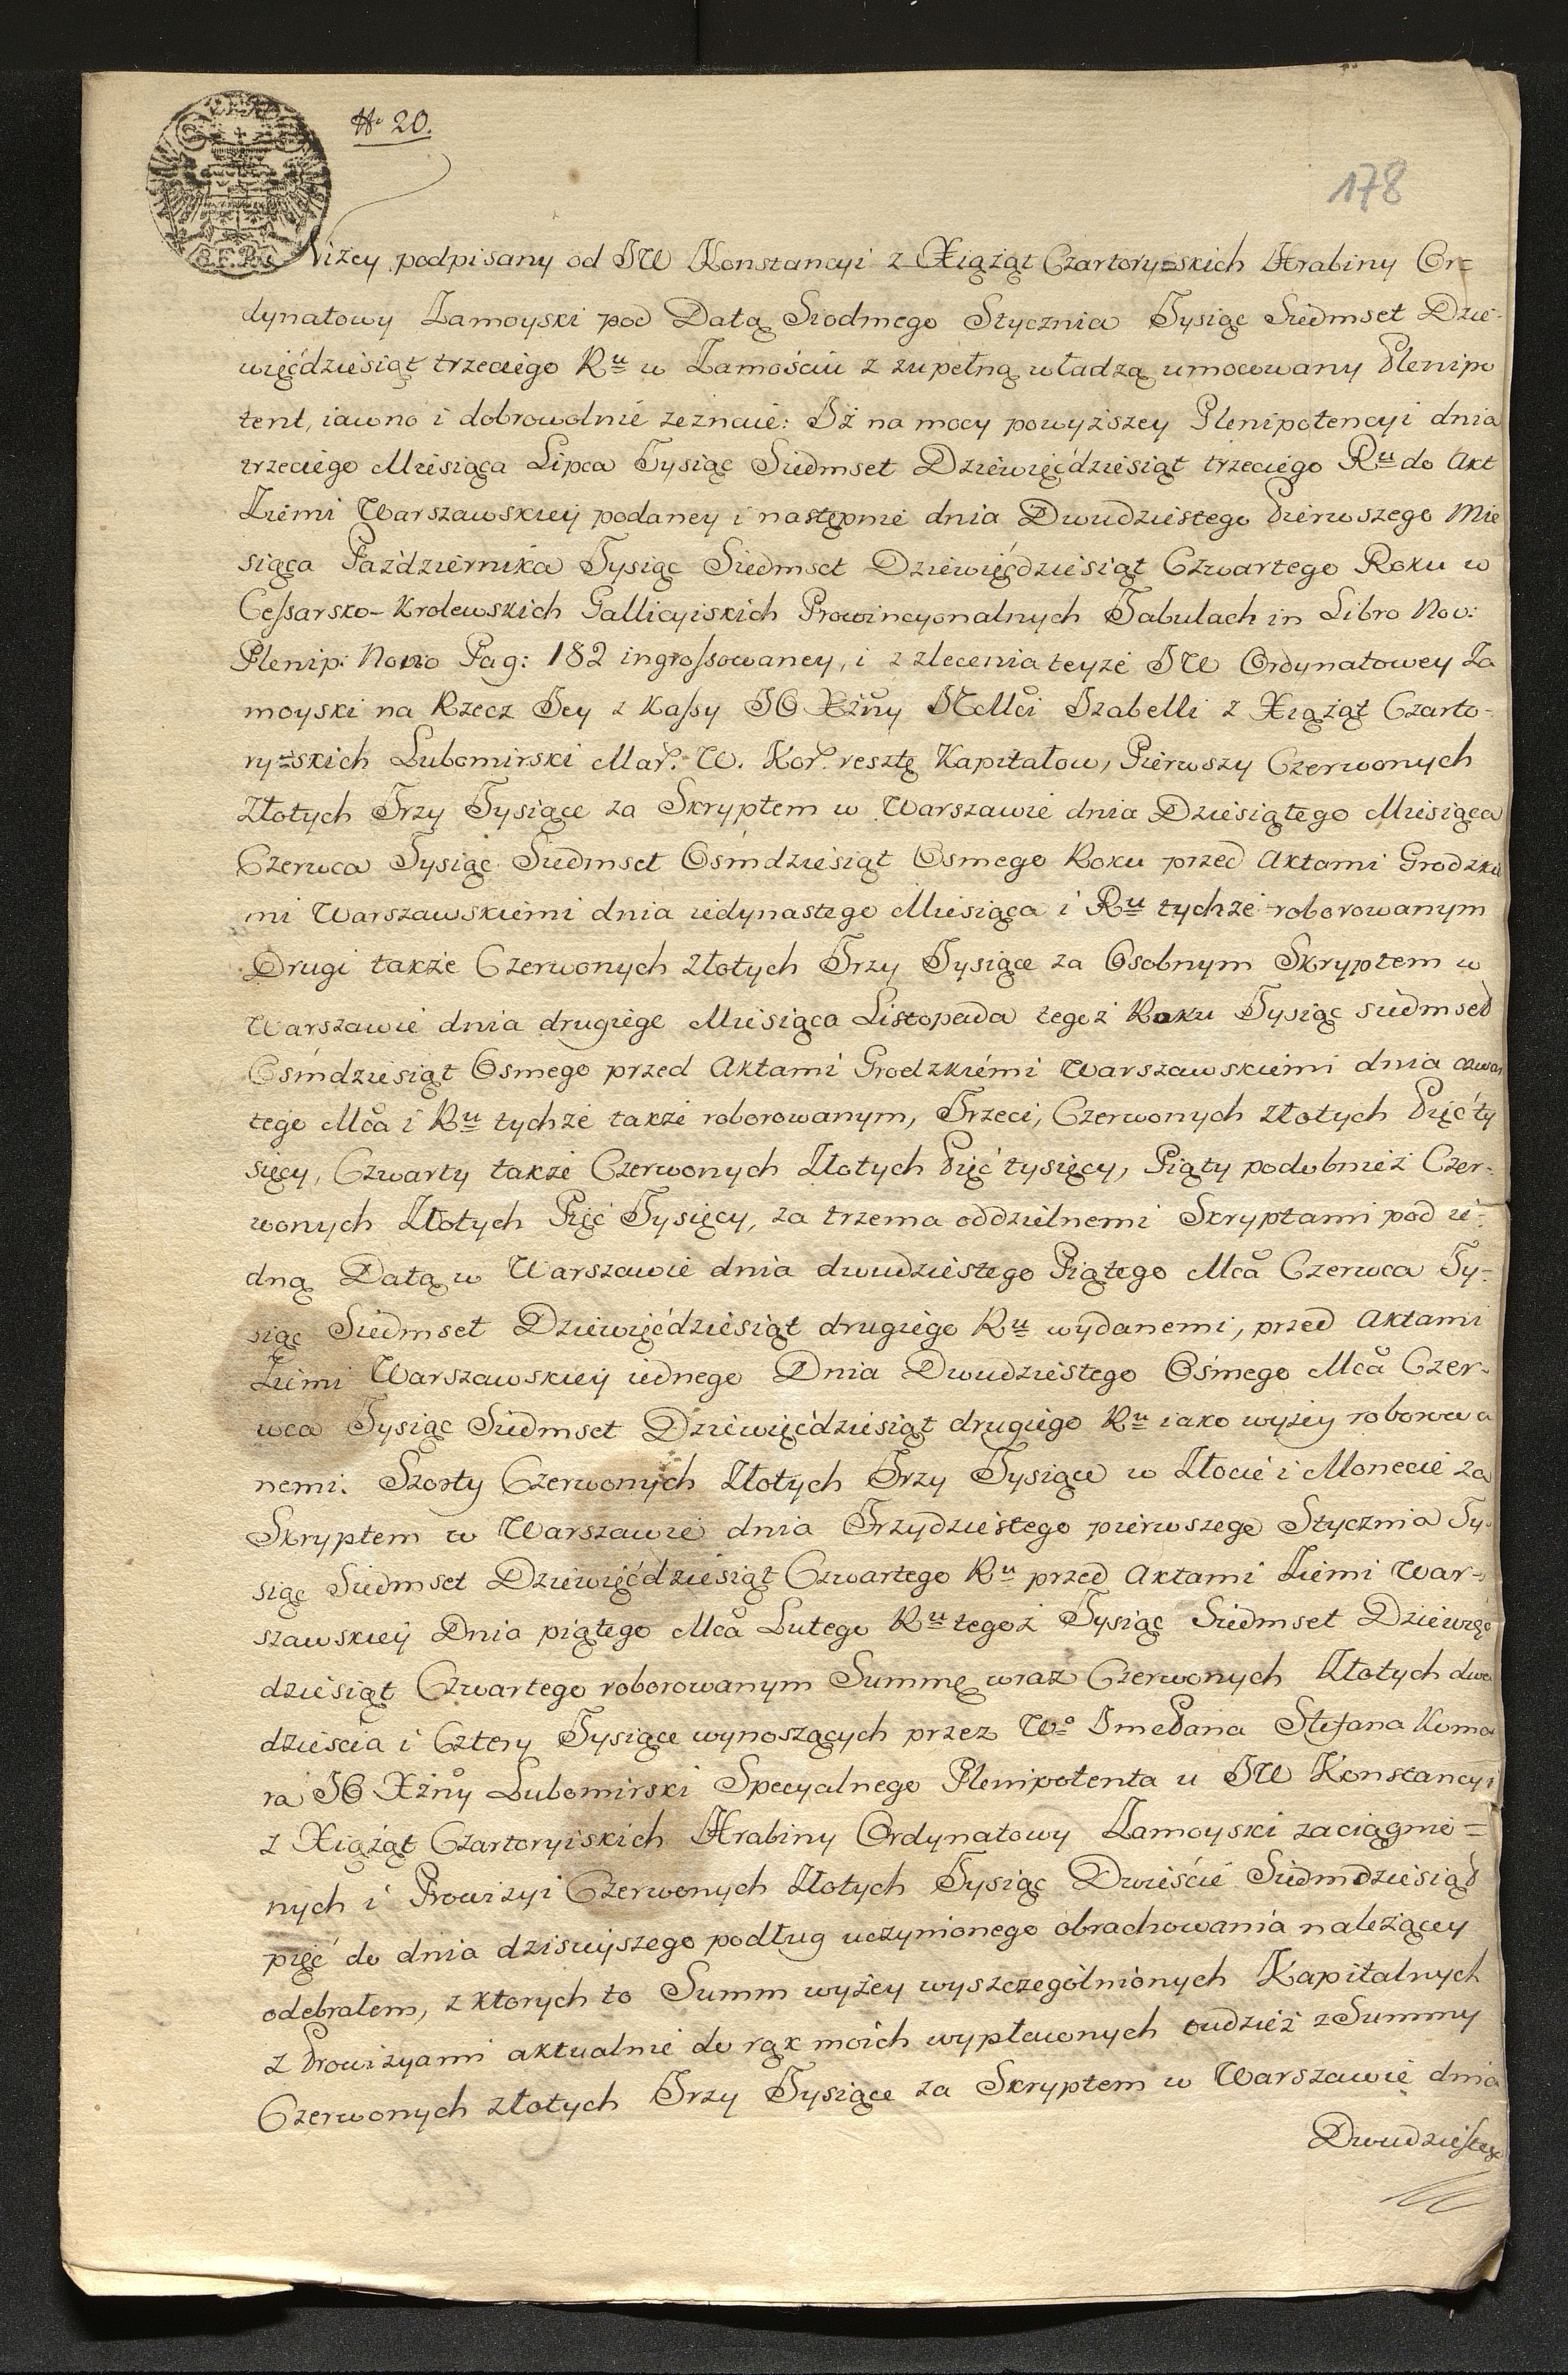 N. 20.
178
Niżey podpisany od JW Konstancyi z Xiążąt Czartoryskich Hrabiny Or=
dynatowy Zamoyski pod Datą Siodmego Stycznia Tysiąc Siedmset Dzie-
więćdziesiąt trzeciego Ru w Zamościu z zupełną władzą umocowany Plenipo
tent, iawno i dobrowolnie zeznaie: Iż na mocy powyższey Plenipotencyi dnia
trzeciego Miesiąca Lipca Tysiąc Siedmset Dziewięćdziesiąt trzeciego Ru do Akt
Ziemi Warszawskiey podaney i następnie dnia Dwudziestego Pierwszego Mie
siąca Pazdziernika Tysiąc Siedmset Dziewięćdziesiąt Czwartego Roku w
Cessarsko-Krolewskich Gallicyiskich Prowincyonalnych Tabulach in Libro Nov:
Plenip: Novo Pag: 182 ingrossowaney, i z zlecenia teyże JW Ordynatowey Za
moyski na Rzecz Jey z Kassy JO Xżny JMci Izabelli z Xiążąt Czarto-
ryskich Lubomirski Mar. W. Kor. resztę Kapitałow, Pierwszy Czerwonych
Złotych Trzy Tysiące za Skryptem w Warszawie dnia Dziesiątego Miesiąca
Czerwca Tysiąc Siedmset Ośmdziesiąt Osmego Roku przed Aktami Grodzkie
mi Warszawskiemi dnia iedynastego Miesiąca i Ru tychże roborowanym
Drugi także Czerwonych złotych Trzy Tysiące za Osobnym Skryptem w
Warszawie dnia drugiego Miesiąca Listopada tegoż Roku Tysiąc siedmset
Ośmdziesiąt Osmego przed Aktami Grodzkiemi Warszawskiemi dnia czwar
tego Mca i Ru tychże także roborowanym, Trzeci, Czerwonych złotych Pięć ty
sięcy, Czwarty także Czerwonych Złotych Pięć tysięcy, Piąty podobnież Czer-
wonych Złotych Pięć Tysięcy, za trzema oddzielnemi Skryptami pod ie-
dną Datą w Warszawie dnia dwudziestego Piątego Mca Czerwca Ty-
siąc Siedmset Dziewięćdziesiąt drugiego Ru wydanemi, przed Aktami
Ziemi Warszawskiey iednego Dnia Dwudziestego Ośmego Mca Czer-
wca Tysiąc Siedmset Dziewięćdziesiąt drugiego Ru iako wyżey roborowa
nemi. Szosty Czerwonych Złotych Trzy Tysiące w Złocie i Monecie za
Skryptem w Warszawie dnia Trzydziestego pierwszego Stycznia Ty-
siąc Siedmset Dziewięćdziesiąt Czwartego Ru przed Aktami Ziemi War-
szawskiey Dnia piątego Mca Lutego Ru tegoż Tysiąc Siedmset Dziewięć
dziesiąt Czwartego roborowanym Summę wraz Czerwonych Złotych dwa
dzieścia i Cztery Tysiące wynoszących przez Wo JmePana Stefana Koma
ra JO Xżny Lubomirski Specyalnego Plenipotenta u JW Konstancyi
z Xiążąt Czartoryiskich Hrabiny Ordynatowy Zamoyski zaciągnio=
nych i Prowizyi Czerwonych Złotych Tysiąc Dwieście Siedmdziesiąt
pięć do dnia dzisieyszego podług uczynionego obrachowania należącey
odebrałem, z ktorych to Summ wyżey wyszczególnionych Kapitalnych
z Prowizyami aktualnie do rąk moich wypłaconych tudzież z Summy
Czerwonych złotych Trzy Tysiące za Skryptem w Warszawie dnia
Dwudziestego